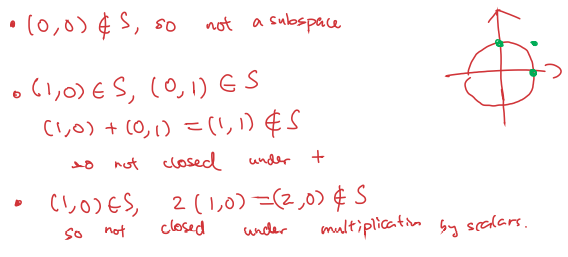 • (0,0) ∉ S, so not a subspace
• (1,0) ∈ S, (0,1) ∈ S
(1,0) + (0,1) = (1,1) ∉ S
so not closed under +
• (1,0) ∈ S, 2(1,0) = (2,0) ∉ S
so not closed under multiplication by scalars.